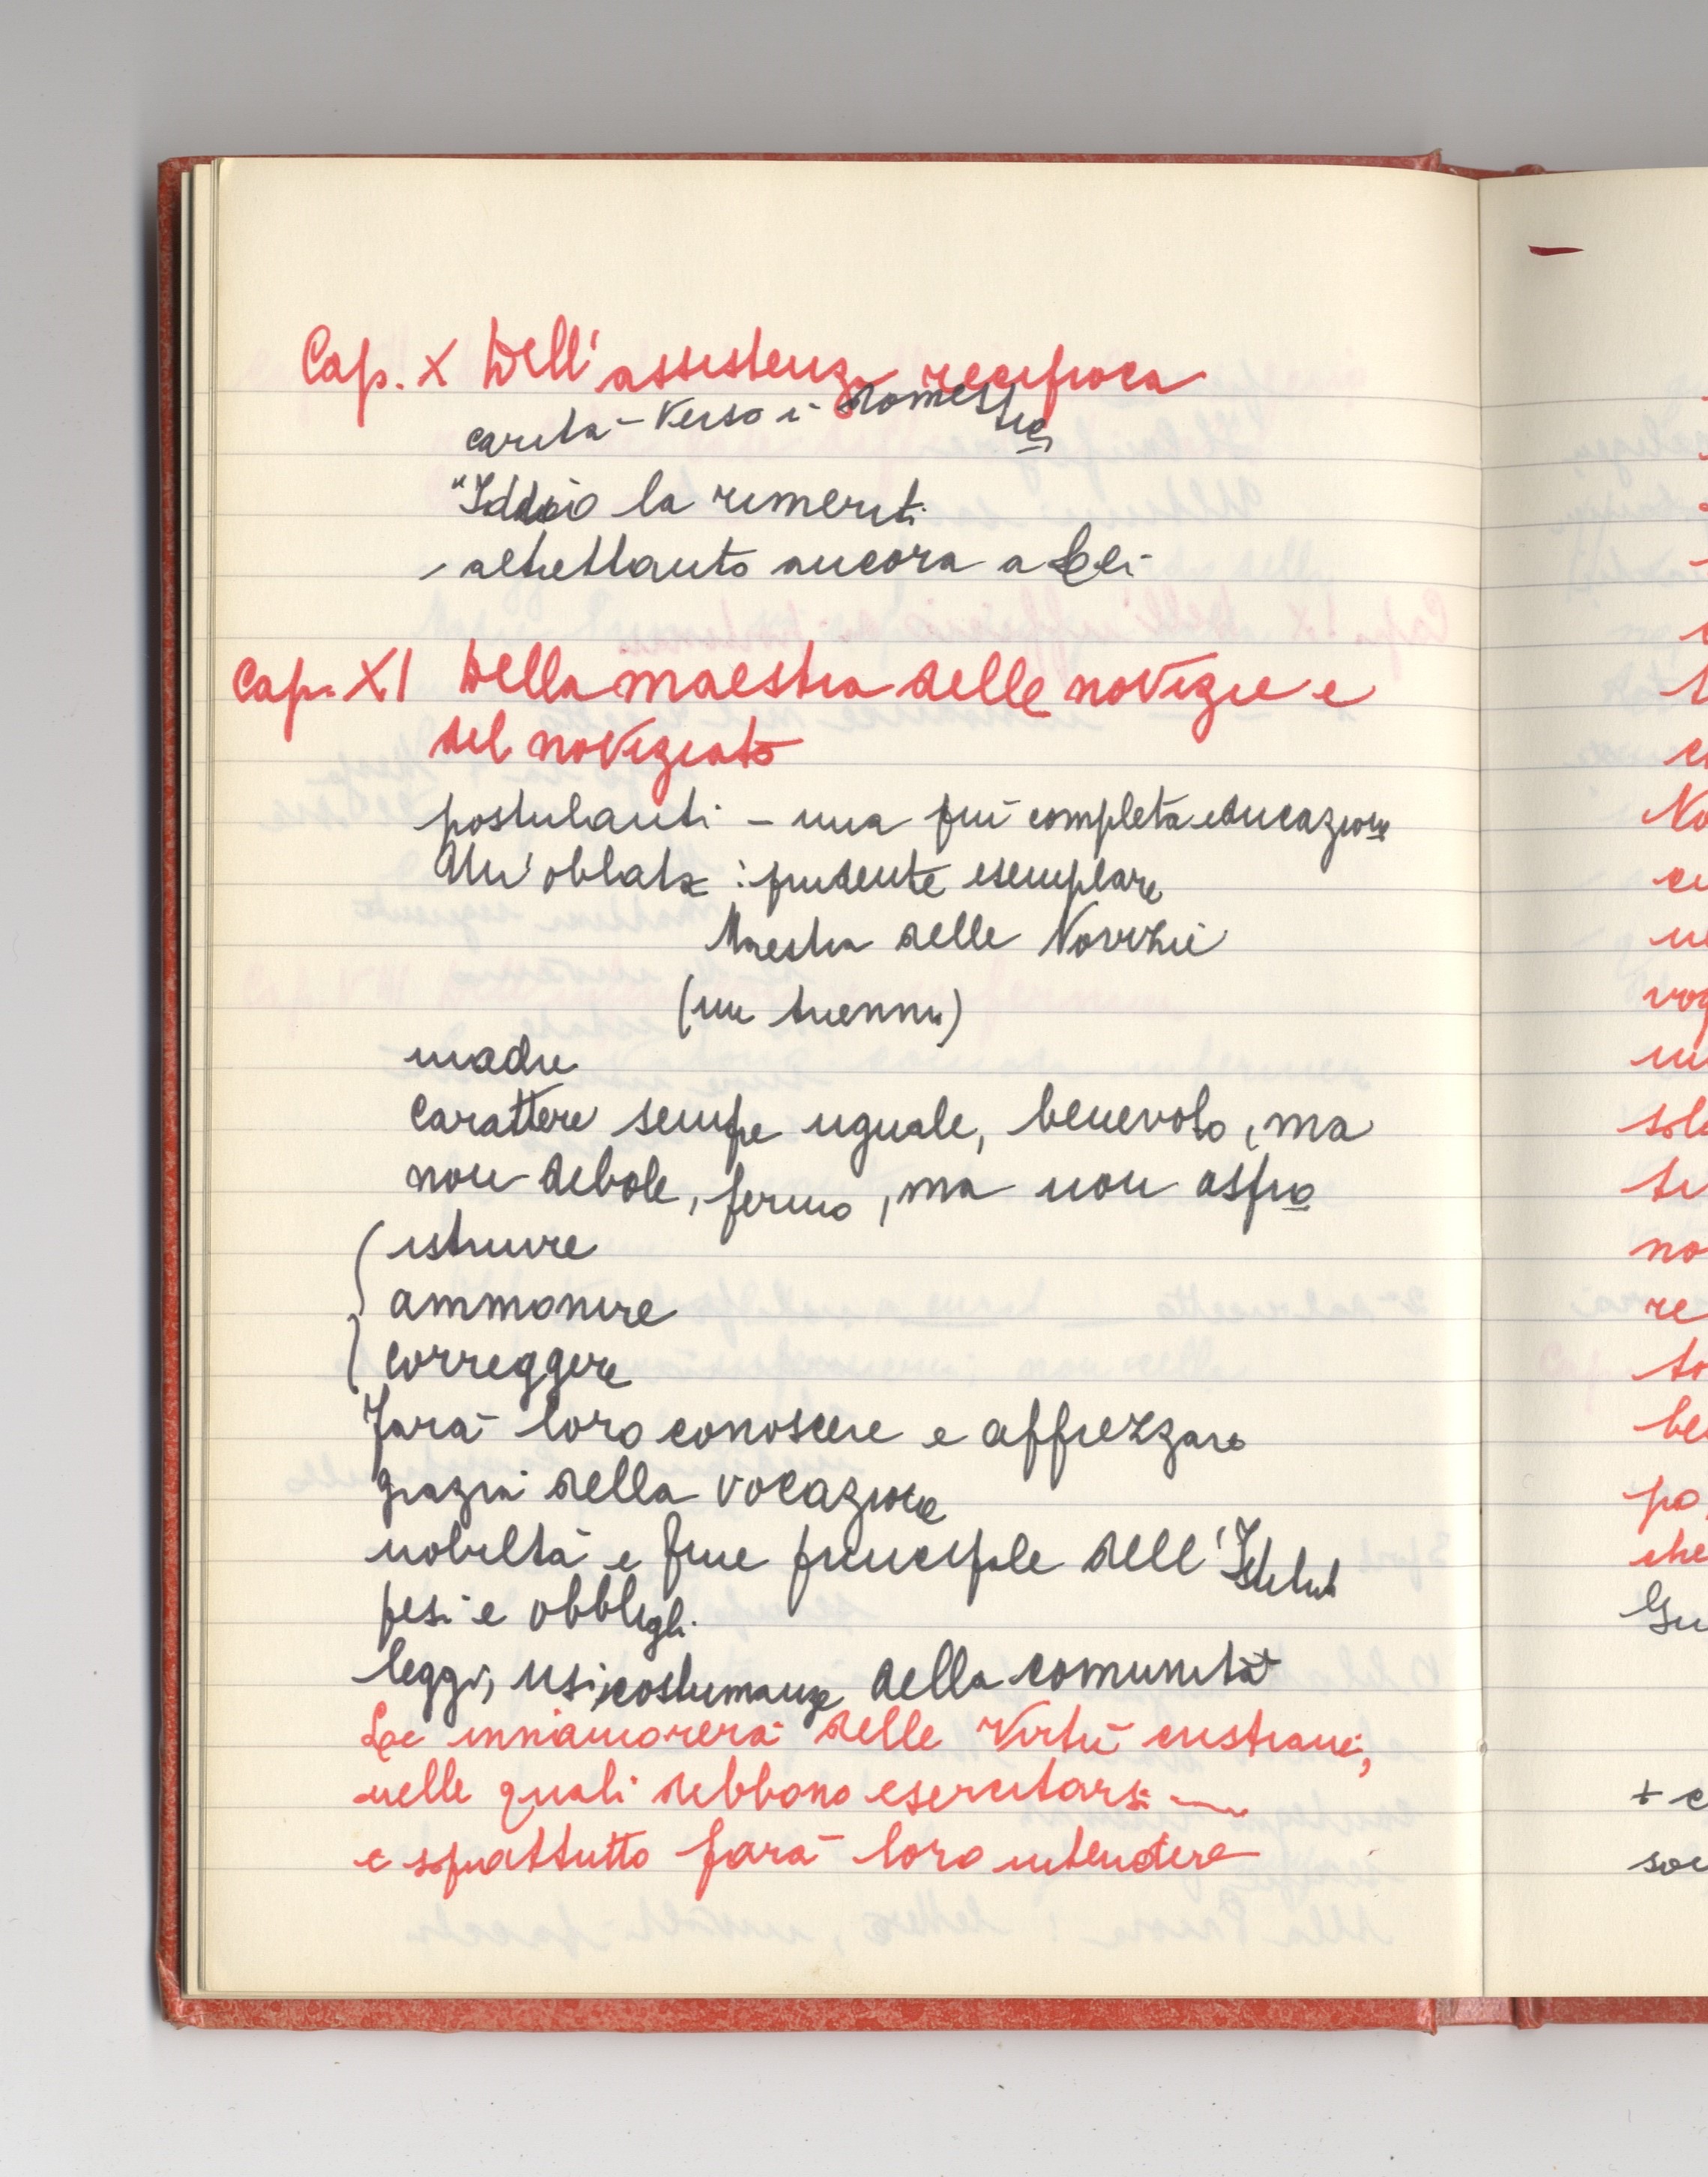 Cap. X Dell'assistenza reciproca
carità - verso i domestici
"Iddio la rimeriti
- altrettanto ancora a lei -
Cap. XI Della maestra delle novizie e
del noviziato
postulanti - una più completa educazione
Un'oblata : prudente esemplare
Maestra delle Novizie
(un triennio)
madre
carattere sempre uguale, benevolo, ma
non debole, fermo, ma non aspro
istruire
ammonire
correggere
Farà loro conoscere e apprezzare
grazia della vocazione
nobiltà e fine principale dell'Istituto
pesi e obblighi
leggi, usi, costumanze della comunità
Le innamorerà delle virtù cristiane,
nelle quali debbono esercitarsi —
e soprattutto farà loro intendere